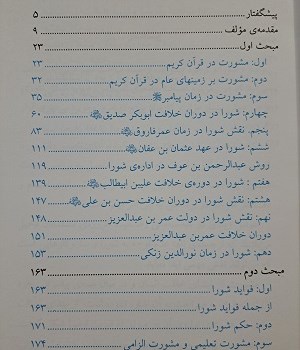 پیشگفتار ۵
مقدمه‌ی مؤلف ۹
مبحث اول ۲۳
اول: مشورت در قرآن کریم ۲۳
دوم: مشورت بر زمینهای عام در قرآن کریم ۳۲
سوم: مشورت در زمان پیامبرﷺ ۳۵
چهارم: شورا در دوران خلافت ابوبکر صدیق ۶۰
پنجم. نقش شورا در زمان عمرفاروق ۸۳
ششم: شورا در عهد عثمان بن عفان ۱۱۱
روش عبدالرحمن بن عوف در اداره‌ی شورا ۱۱۹
هفتم : شورا در دوره‌ی خلافت علیبن ابیطالب ۱۳۹
هشتم: نقش شورا در خلافت حسن بن علی ۱۴۷
نهم: نقش شورا در دولت عمر بن عبدالعزیز ۱۴۸
دوران خلافت عمربن عبدالعزیز ۱۵۱
دهم: شورا در زمان نورالدین زنکی ۱۵۳
مبحث دوم ۱۶۳
اول: فواید شورا ۱۶۳
از جمله فواید شورا ۱۶۳
دوم: حکم شورا ۱۷۱
سوم: مشورت تعلیمی و مشورت الزامی ۱۷۴